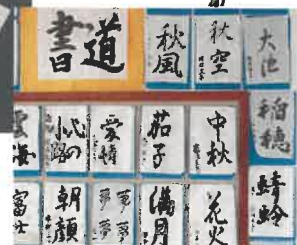 書道
秋風
秋空
大池
稲穂
雲海
心の
小路
愛情
茄子
中秋
蜻蛉
富士
朝顔
夢夢
夢夢
満月
花火